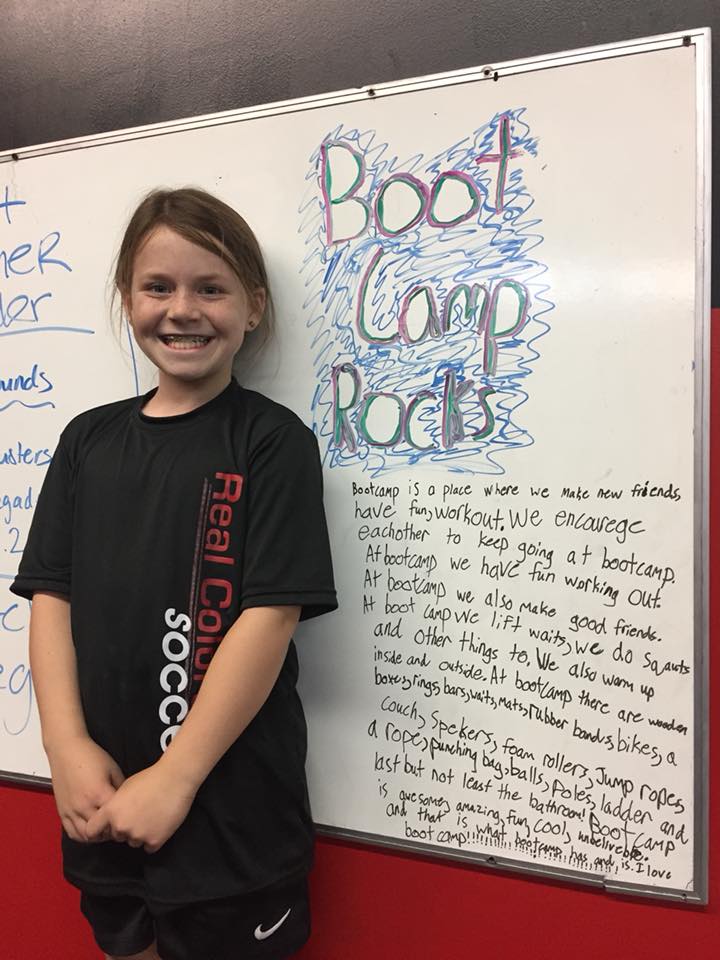 Boot
Camp
Rocks
Bootcamp is a place where we make new friends,
have fun, workout. We encourege
eachother to keep going at bootcamp.
At bootcamp we have fun working out.
At bootcamp we also make good friends.
At boot camp we lift waits, we do squats
and other things to. We also warm up
inside and outside. At bootcamp there are wooden
boxes, rings, bars, waits, mats, rubber bands, bikes, a
couch, spekers, foam rollers, jump ropes,
a rope, punching bag, balls, poles, ladder and
last but not least the bathroom! Bootcamp
is awesome, amazing, fun, cool, unbeliveble.
and that is what bootcamp has, and is. I love
boot camp!!!!!!!!!!!!!!!!!!!!!!!!!
Real Color
soccer
unds